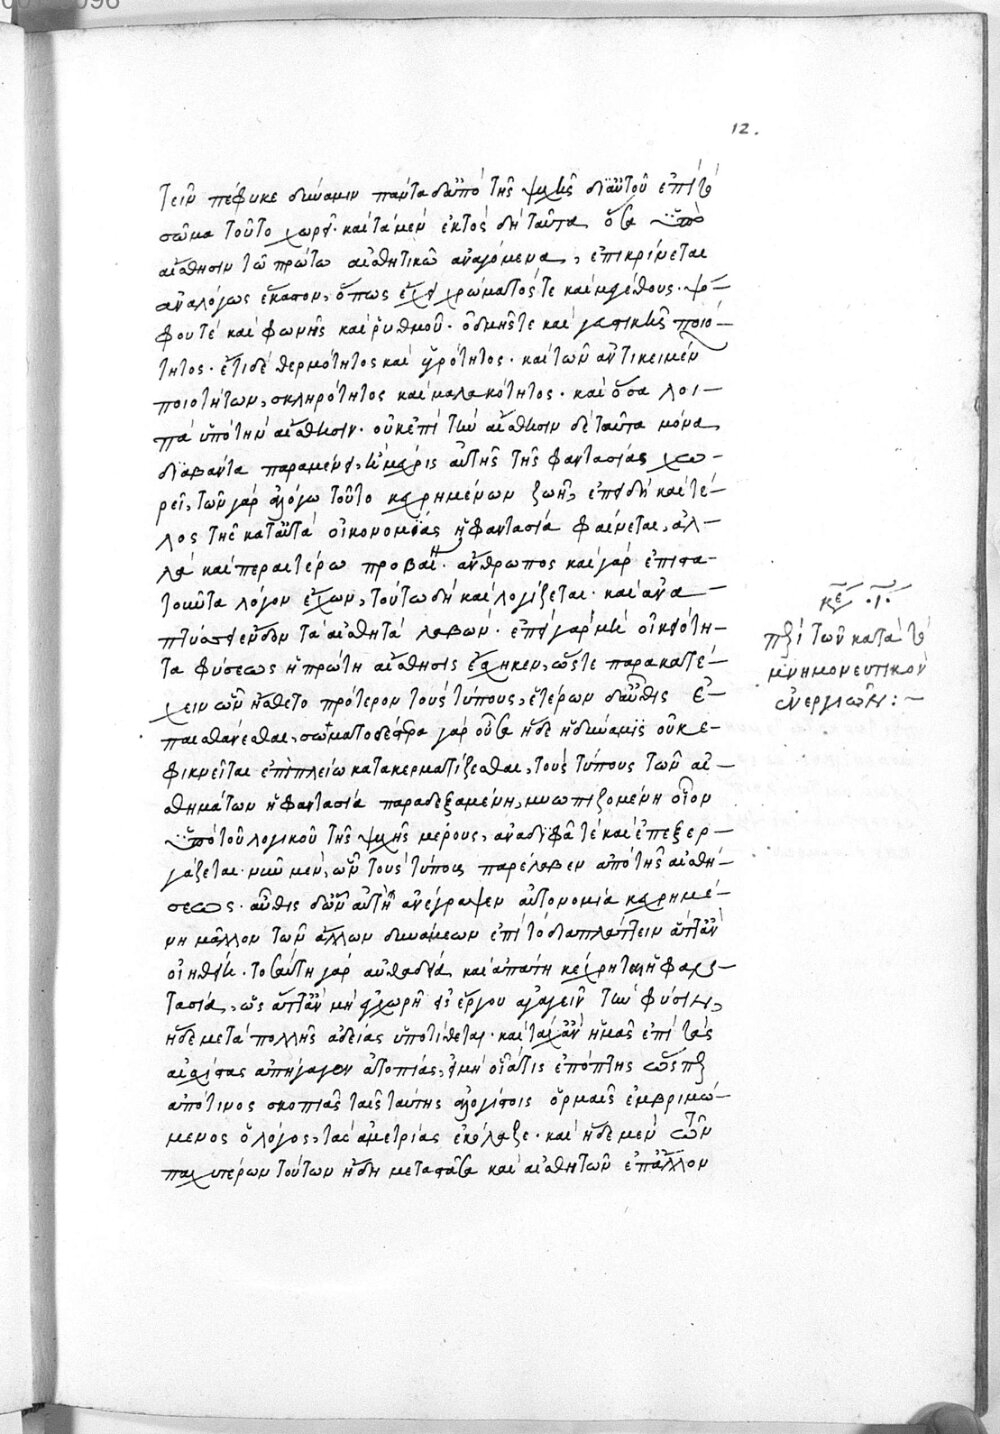 12.
τεῖν πέφυκε δύναμιν πάντα δ' ἀπὸ τῆς ψυχῆς δι' αὐτοῦ ἐπὶ τὸ
σῶμα τοῦτο χωρεῖ· καὶ τὰ μὲν ἐκτὸς δὴ ταῦτα ὅσα ὑπὸ
αἴσθησιν τῷ πρώτῳ αἰσθητικῷ ἀναγόμενα, ἐπικρίνεται
ἀναλόγως ἕκαστον, ὅπως ἔχει χρώματός τε καὶ μεγέθους· ψό-
φου τὲ καὶ φωνῆς καὶ ῥυθμοῦ· ὀδμῆς τε καὶ γευστικῆς ποιό-
τητος· ἔτι δὲ θερμότητος καὶ ὑγρότητος· καὶ τῶν ἀντικειμένων
ποιοτήτων, σκληρότητος καὶ μαλακότητος· καὶ ὅσα λοι-
πὰ ὑπὸ τὴν αἴσθησιν· οὐκ ἐπὶ τὴν αἴσθησιν δὲ ταῦτα μόνα
διαβάντα παραμένει, μέχρις αὐτῆς τῆς φαντασίας χω-
ρεῖ, τῶν γὰρ ἀλόγῳ τοῦτο κεχρημένων ζωῇ, ἐπειδὴ καὶ τέ-
λος τῆς κατ' αὐτὰ οἰκονομίας ἡ φαντασία φαίνεται, ἀλ-
λὰ καὶ περαιτέρω προβαί· ἄνθρωπος καὶ γὰρ ἐπιστα-
τοῦντα λόγον ἔχων, τούτῳ δὴ καὶ λογίζεται· καὶ ἀνα-
πτύσσει ἔνδον τὰ αἰσθητὰ λαβών· ἐπεὶ γὰρ μὴ οἰκειότη-
τα φύσεως ἡ πρώτη αἴσθησις ἔσχηκεν, ὥστε παρακατέ-
χειν ὧν ᾔσθετο πρότερον τοὺς τύπους, ἑτέρων δ' αὖθις ἐ-
παισθάνεσθαι, σωματοδέστρα γὰρ οὖσα ἥδε ἡ δύναμις οὐκ ἐ-
φικνεῖται ἐπιπλείω κατακερματίζεσθαι, τοὺς τύπους τῶν αἰ-
σθημάτων ἡ φαντασία παραδεξαμένη, μυωπιζομένη οἷον
ὑπὸ τοῦ λογικοῦ τῆς ψυχῆς μέρους, ἀναδιφᾷ τὲ καὶ ἐπεξερ-
γάζεται· νῦν μὲν, ὧν τοὺς τύπους παρέλαβεν ἀπὸ τῆς αἰσθή-
σεως· αὖθις δ' ὧν αὐτὴ ἀνέγραψεν αὐτονομία κεχρημέ-
νη μᾶλλον τῶν ἄλλων δυνάμεων ἐπὶ τὸ διαπλάττειν ἅττ' ἂν
οἰηθείη· τοσαύτη γὰρ αὐθαδεία καὶ ἀπάτη κέχρηται ἡ φαν-
τασία, ὡς ἅττ' ἂν μὴ ἐγχωρῇ εἰς ἔργου ἀγαγεῖν τὴν φύσιν,
ἥδε μετὰ πολλῆς ἀδείας ὑποτίθεται· καὶ τάχ' ἂν ἡμᾶς ἐπὶ τὰς
αἰσχίστας ἀπήγαγεν ἀτοπίας, εἰ μὴ οἷά τις ἐπόπτης ὥσπερ
ἀπό τινος σκοπιᾶς ταῖς ταύτης ἀλογίστοις ὁρμαῖς ἐμβριμώ-
μενος ὁ λόγος, τὰς ἀμετρίας ἐκόλαζε· καὶ ἥδε μὲν ὧν
παχυτέρων τούτων ἤδη μεταφᾶσα καὶ αἰσθητῶν ἐπ' ἄλλον
κεφ. ι.
περὶ τῶν κατὰ τὸ
μνημονευτικὸν
ἐνεργειῶν: ~